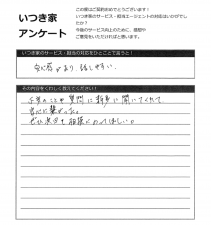 いつき家
アンケート
この度はご契約おめでとうございます！
いつき家のサービス・担当エージェントの対応はいかがでしたか？
今後のサービス向上のために、感想やご意見をいただければと思います。
いつき家のサービス・担当の対応をひとことで言うと！
安心感があり、話しやすい。
その内容をくわしく教えてください！
不安なことや質問に親身に聞いてくれて、
安心に繋がった。
ぜひ次回も担当してほしい。